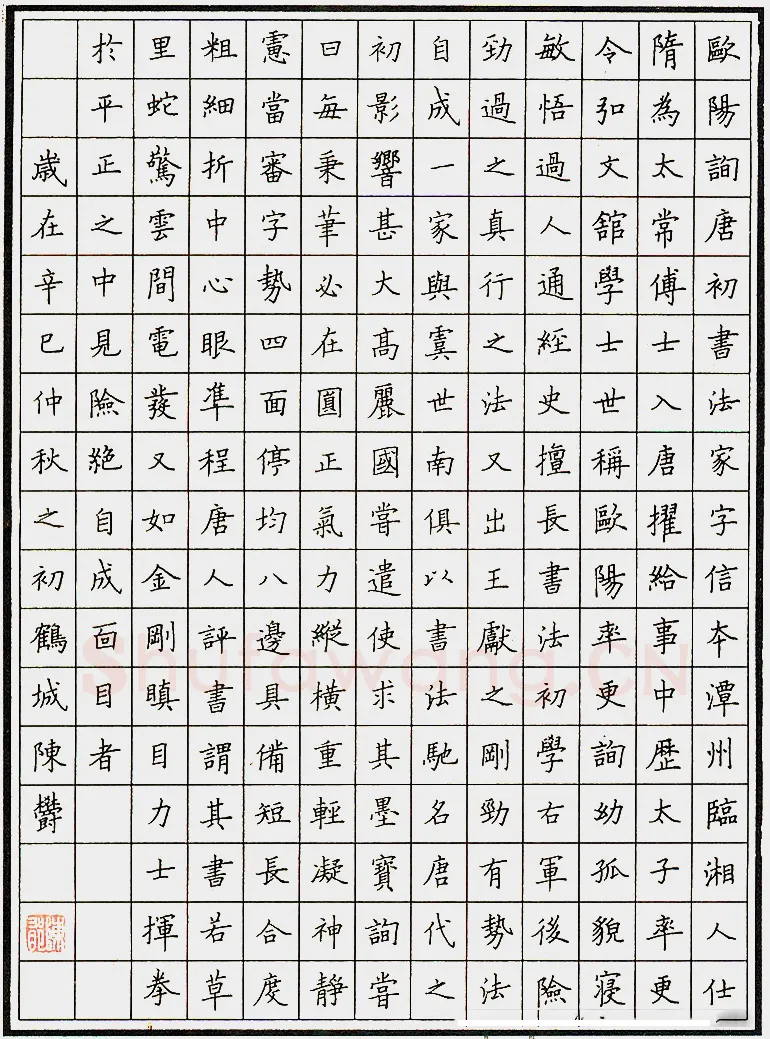 歐陽詢唐初書法家字信夲潭州臨湘人仕
隋為太常博士入唐擢給事中歷太子率更
令弘文舘學士世稱歐陽率更詢幼孤貌寑
敏悟過人通經史擅長書法初學右軍後險
勁過之真行之法又出王獻之剛勁有勢法
自成一家與虞世南俱以書法馳名唐代之
初影響甚大高麗國嘗遣使求其墨寶詢嘗
曰每秉筆必在圓正氣力縱橫重輕凝神靜
慮當審字勢四面停均八邊具備短長合度
粗細折中心眼準程唐人評書謂其書若草
里蛇驚雲間電發又如金剛瞋目力士揮拳
於平正之中見險絕自成面目者
歲在辛巳仲秋之初鶴城陳欝
Shufawang.CN